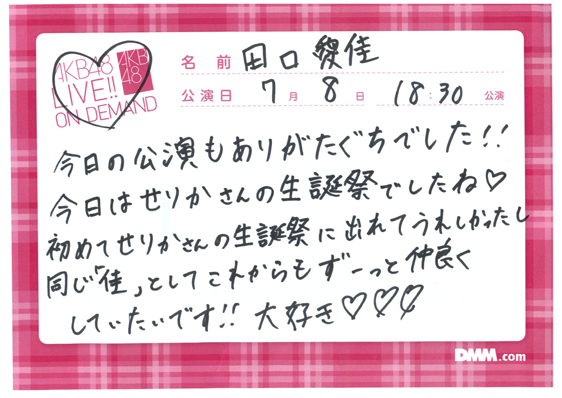 AKB48
LIVE!!
ON DEMAND
AKB
48
名前 田口愛佳
公演日 7月8日 18:30 公演
今日の公演もありがたぐちでした!!
今日はせりかさんの生誕祭でしたね♡
初めてせりかさんの生誕祭に出れてうれしかったし
同じ「佳」としてこれからもずーっと仲良く
していたいです!! 大好き♡♡♡
DMM.com